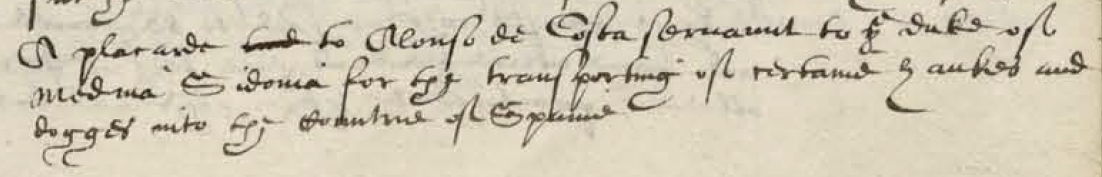 A placarde to Alonso de Costa servaunt to ye duke of
Medina Sidonia for the transporting of certaine haukes and
dogges into the countrie of Spaine